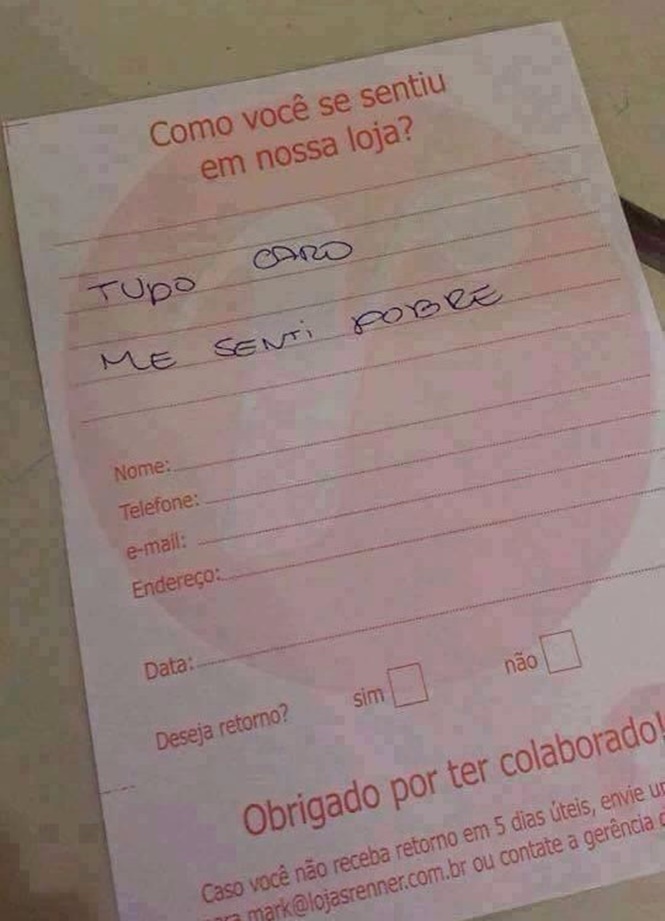 Como você se sentiu
em nossa loja?
TUDO CARO
ME SENTI POBRE
Nome:
Telefone:
e-mail:
Endereço:
Data:
Deseja retorno? sim não
Obrigado por ter colaborado!
Caso você não receba retorno em 5 dias úteis, envie
mark@lojasrenner.com.br ou contate a gerência